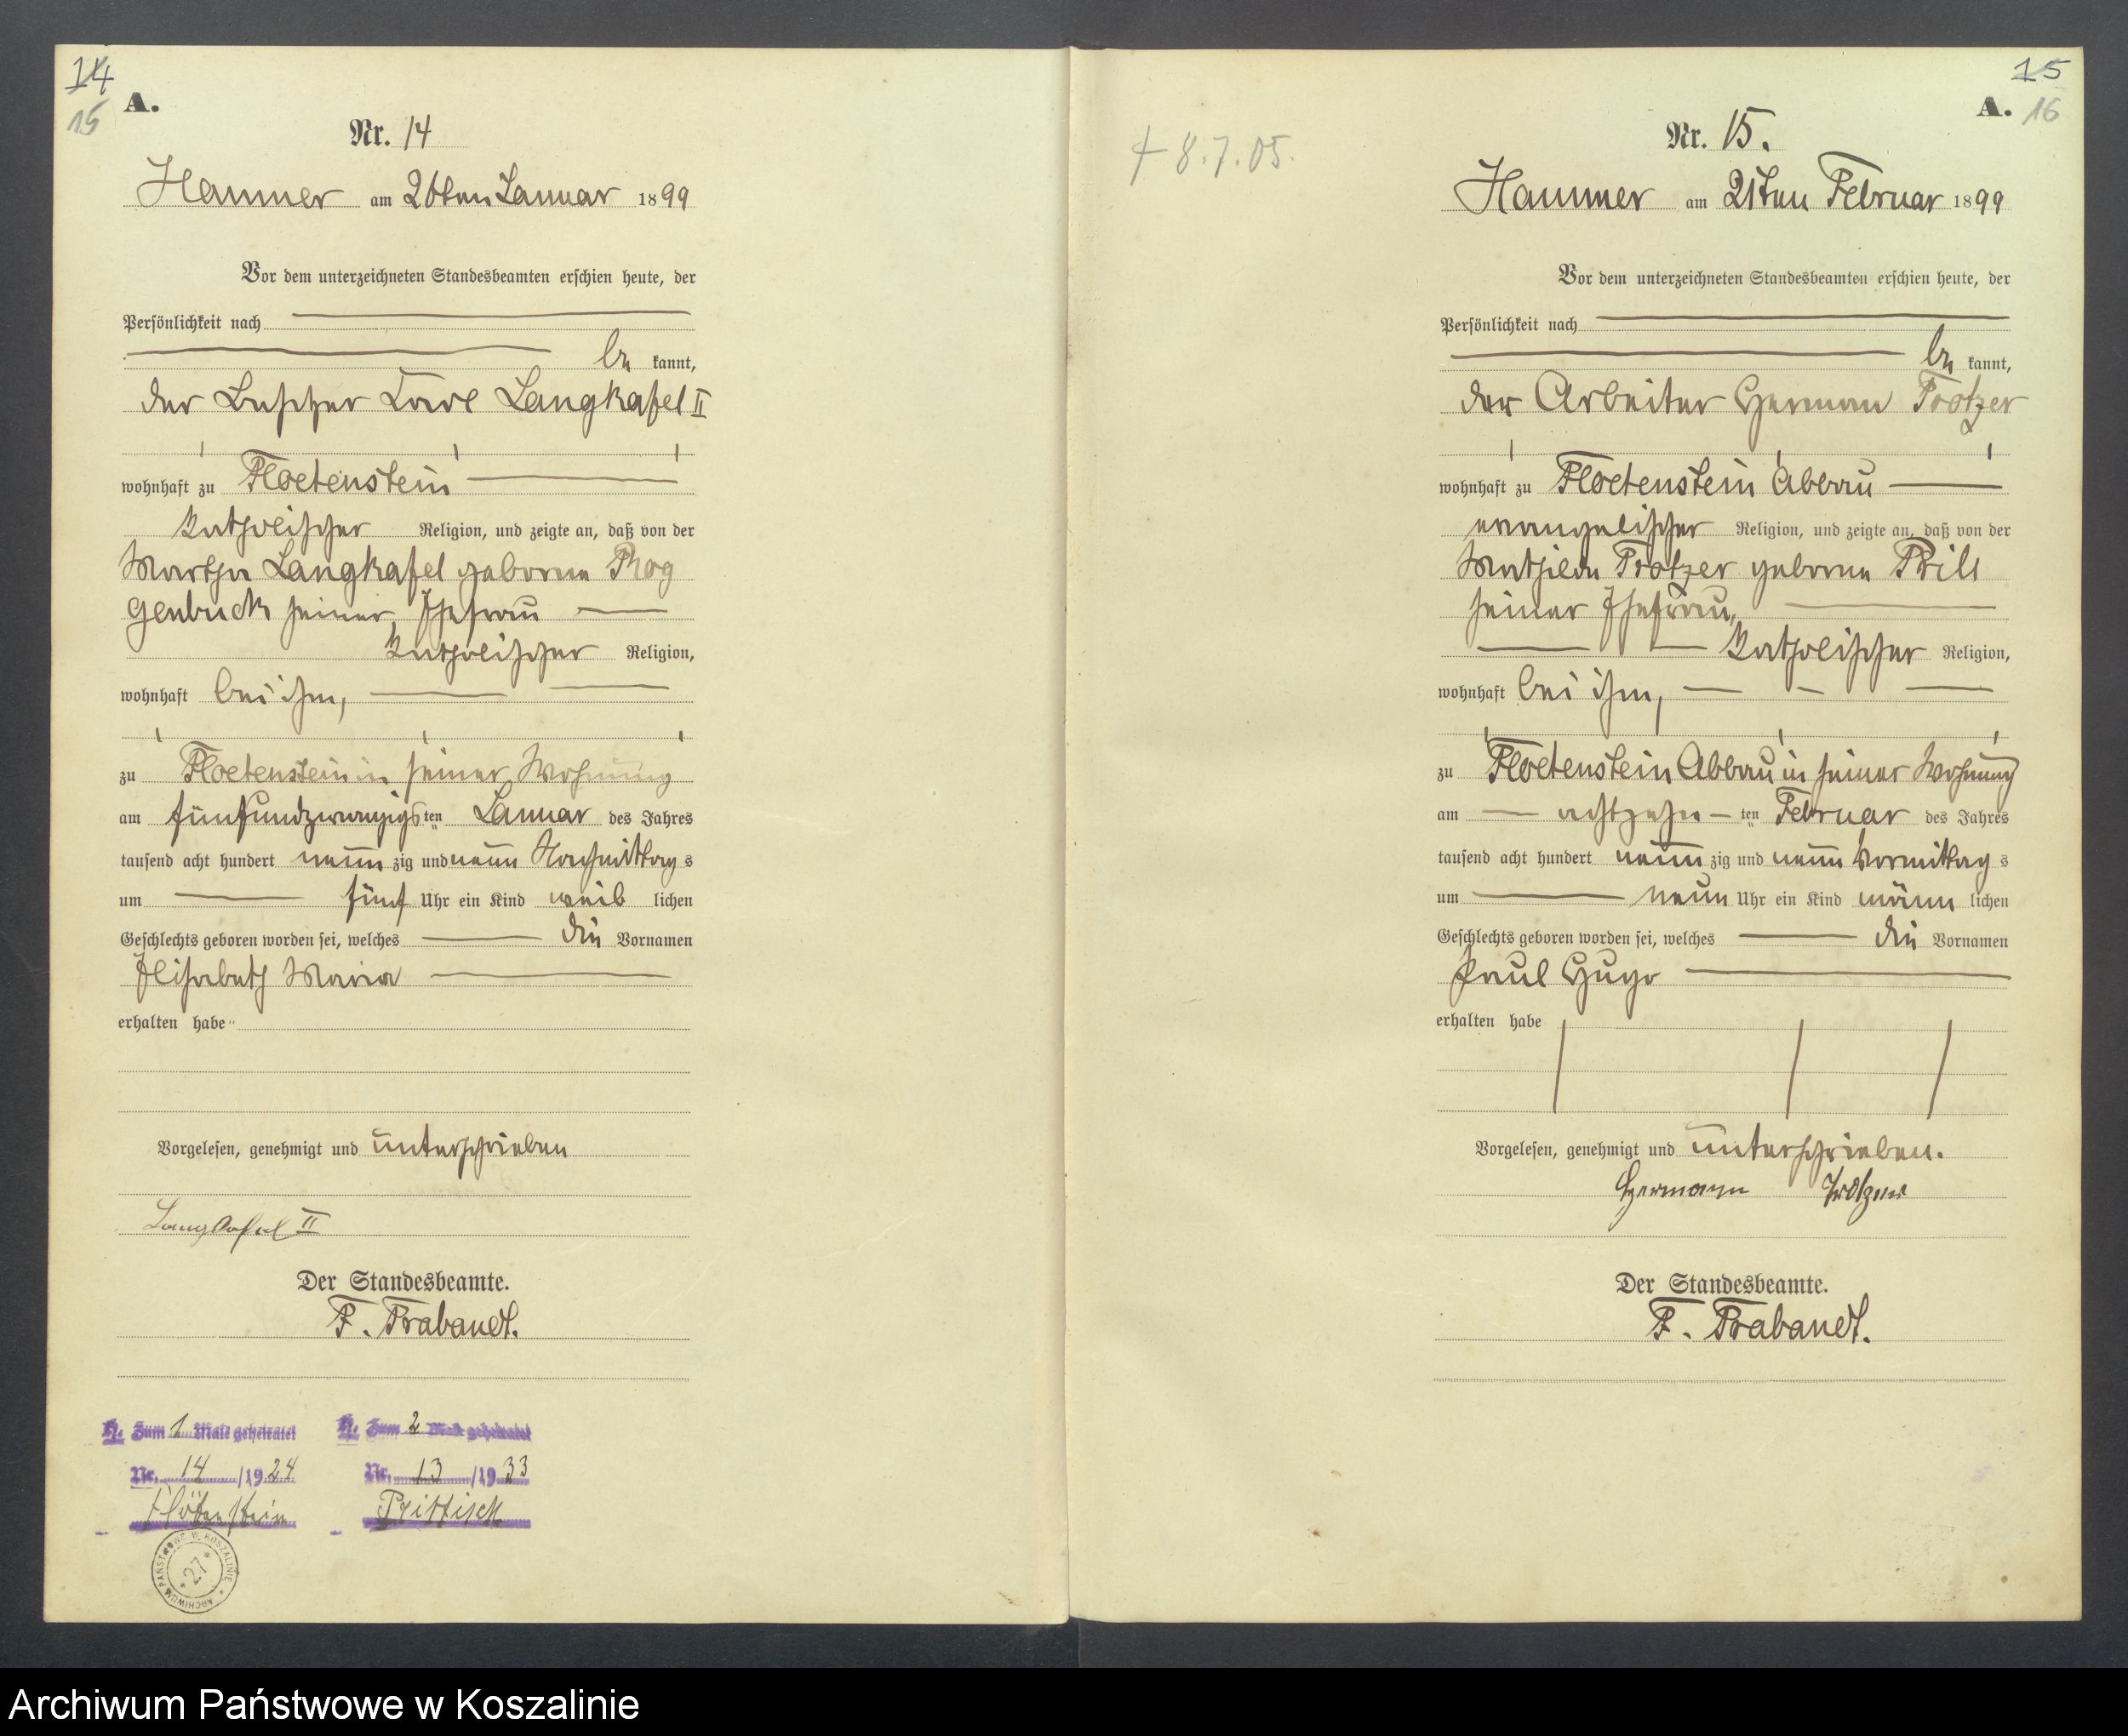 14
15
A.
Nr. 14
Hammer am 26ten Januar 1899
Vor dem unterzeichneten Standesbeamten erschien heute, der
Persönlichkeit nach
be kannt,
der Besitzer Carl Langkafel II
wohnhaft zu Floetenstein
katholischer Religion, und zeigte an, daß von der
Martha Langkafel geborne Rog
genbuck seiner Ehefrau
katholischer Religion,
wohnhaft bei ihm,
zu Floetenstein in seiner Wohnung
am fünfundzwanzigsten Januar des Jahres
tausend acht hundert neun zig und neun Nachmittag s
um fünf Uhr ein Kind weib lichen
Geschlechts geboren worden sei, welches die Vornamen
Elisabeth Maria
erhalten habe
Vorgelesen, genehmigt und unterschrieben
Langkafel II
Der Standesbeamte.
F. Brabandt.
H. Zum 1 Male geheiratet
Nr. 14 /1924
Flötenstein
H. Zum 2 Male geheiratet
Nr. 13 /1933
ARCHIWUM PAŃSTWOWE W KOSZALINIE
* 27 *
15
A. 16
+ 8.7.05.
Nr. 15.
Hammer am 21ten Februar 1899
Vor dem unterzeichneten Standesbeamten erschien heute, der
Persönlichkeit nach
be kannt,
der Arbeiter Herman Trotzer
wohnhaft zu Floetenstein Abbau
evangelischer Religion, und zeigte an, daß von der
Mathilda Trotzer geborne Prill
seiner Ehefrau,
katholischer Religion,
wohnhaft bei ihm,
zu Floetenstein Abbau in seiner Wohnung
am achtzehn ten Februar des Jahres
tausend acht hundert neun zig und neun Vormittag s
um neun Uhr ein Kind männ lichen
Geschlechts geboren worden sei, welches die Vornamen
Paul Hugo
erhalten habe
Vorgelesen, genehmigt und unterschrieben.
Hermann Trotzer
Der Standesbeamte.
F. Brabandt.
Archiwum Państwowe w Koszalinie